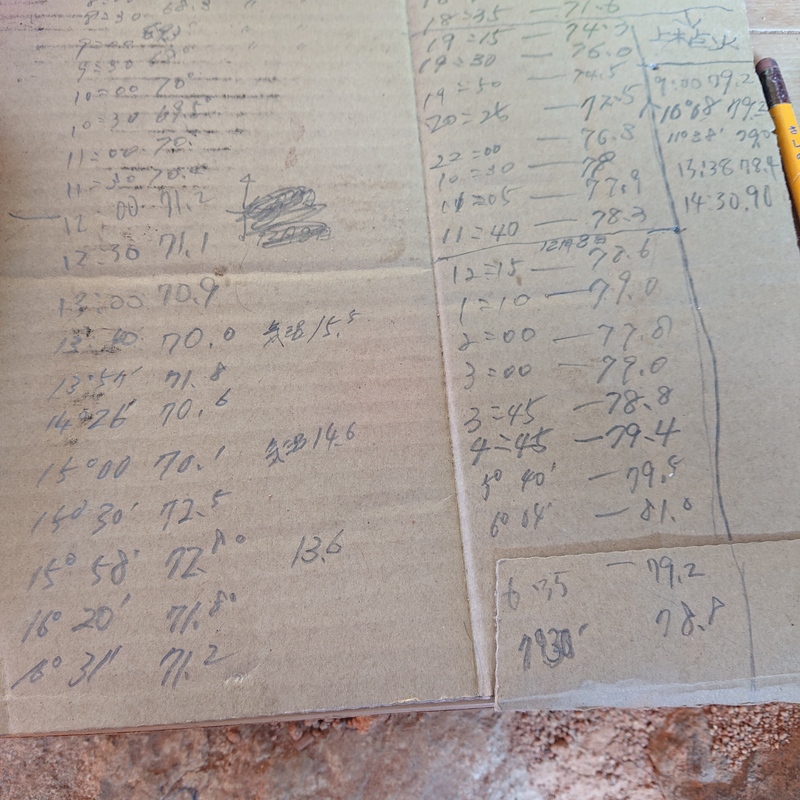 8=30 68.3
9=00
9=30
10=00 70°
10=30 69.5°
11=00 70.°
11=30 70.0
12:00 71.2
12:30 71.1
13=00 70.9
70.0 気温15.5
13°57' 71.8
14°26' 70.6
15°00 70.1 気温14.6
15° 30' 72.5
15° 58' 72.8° 13.6
16° 20' 71.8°
16° 31' 71.2
18=35 — 71.6
19=15 — 74.7
19=30 — 76.0
19=50 — 74.5
20=26 — 72.5
— 76.8
22=00
10=30 — 78
11=05 — 77.9
11=40 — 78.3
12月8日
12=15 — 77.6
1=10 — 79.0
2=00 — 77.8
3=00 — 79.0
3=45 — 78.8
4=45 — 79.4
5° 40' — 79.5
6° 04' — 81.0
6=35 — 79.2
7°30' 78.8
上木点火
9:00 79.2
10°08 79.2
11°38'
13:38 78.4
14:30.90